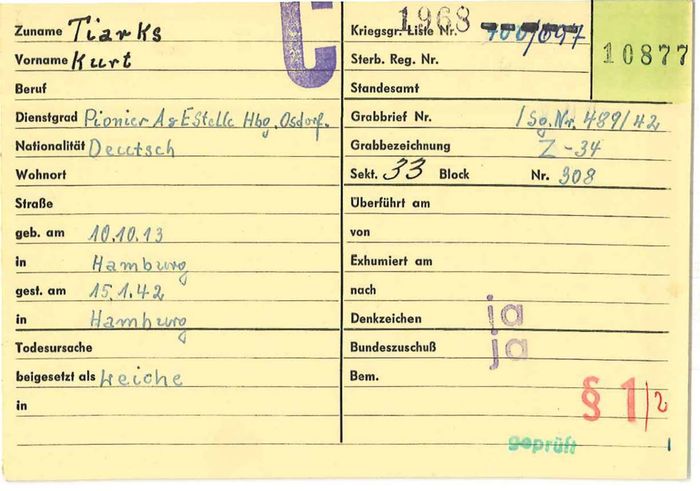 C
1968
10877
Zuname Tiarks
Vorname Kurt
Beruf
Dienstgrad Pionier A&EStelle Hbg. Osdorf.
Nationalität Deutsch
Wohnort
Straße
geb. am 10.10.13
in Hamburg
gest. am 15.1.42
in Hamburg
Todesursache
beigesetzt als Leiche
in
Kriegsgr. Liste Nr. 700/697
Sterb. Reg. Nr.
Standesamt
Grabbrief Nr. /Sg.Nr. 489/42
Grabbezeichnung Z-34
Sekt. 33 Block Nr. 308
Überführt am
von
Exhumiert am
nach
Denkzeichen ja
Bundeszuschuß ja
Bem.
§ 1/2
geprüft